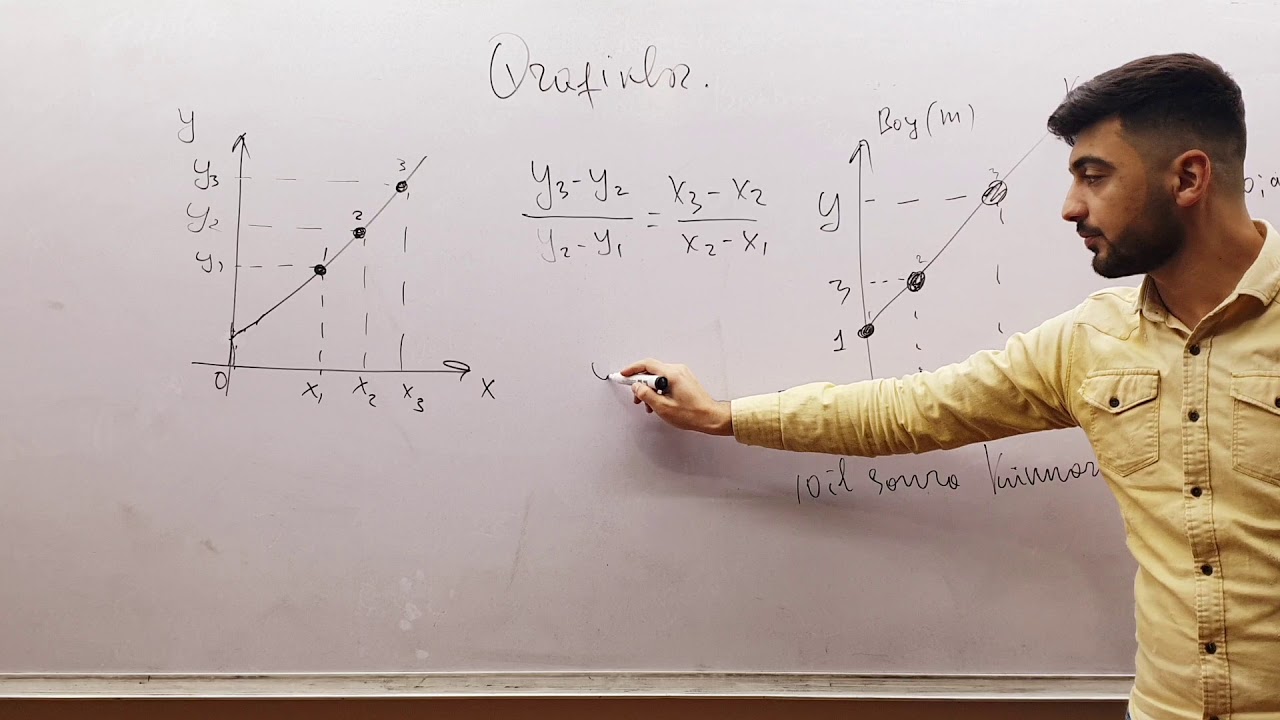 Qrafiklər.
y
y₃
y₂
y₁
3
2
1
0
x₁ x₂ x₃ x
y₃-y₂ / y₂-y₁ = x₃-x₂ / x₂-x₁
Boy (m)
y
3
1
3
2
1
10 il sonra